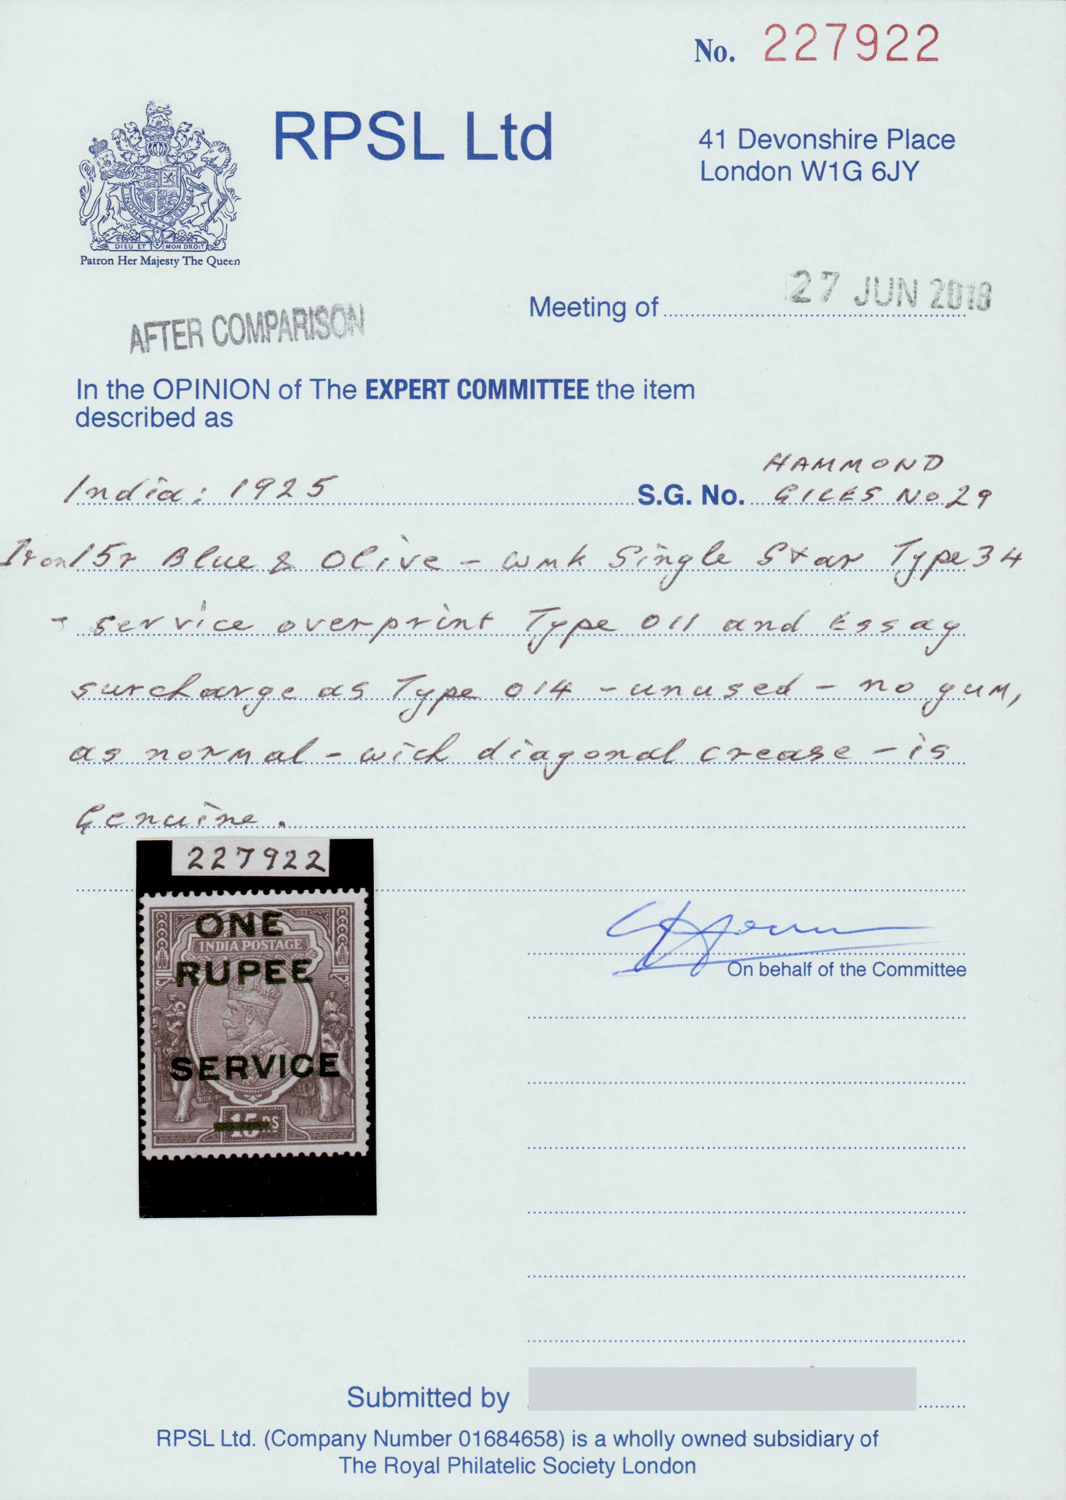 No. 227922
RPSL Ltd
41 Devonshire Place
London W1G 6JY
DIEU ET MON DROIT
Patron Her Majesty The Queen
Meeting of 27 JUN 2018
AFTER COMPARISON
In the OPINION of The EXPERT COMMITTEE the item
described as
HAMMOND
India: 1925 S.G. No. GILES No 29
1r on 15r Blue & Olive - wmk Single Star Type 34
- service overprint Type O11 and Essay
surcharge as Type O14 - unused - no gum,
as normal - with diagonal crease - is
Genuine.
227922
ONE
INDIA POSTAGE
RUPEE
SERVICE
15 RS
On behalf of the Committee
Submitted by
RPSL Ltd. (Company Number 01684658) is a wholly owned subsidiary of
The Royal Philatelic Society London